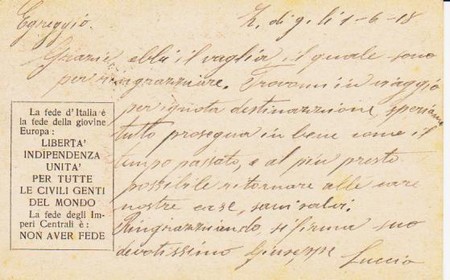 Egreggio. Z. di g. li 1-6-18
Grazie ebbi il vaglia il quale sono
per ringrazziare. Trovomi in viaggio
per ignota destinazzione, speriamo
tutto prosegua in bene come il
tempo passato, e al più presto
possibile ritornare alle care
nostre case,
Ringrazziando si firma suo
devotissimo Giuseppe
Luccio
La fede d'Italia è
la fede della giovine
Europa:
LIBERTA'
INDIPENDENZA
UNITA'
PER TUTTE
LE CIVILI GENTI
DEL MONDO
La fede degli Im-
peri Centrali è:
NON AVER FEDE